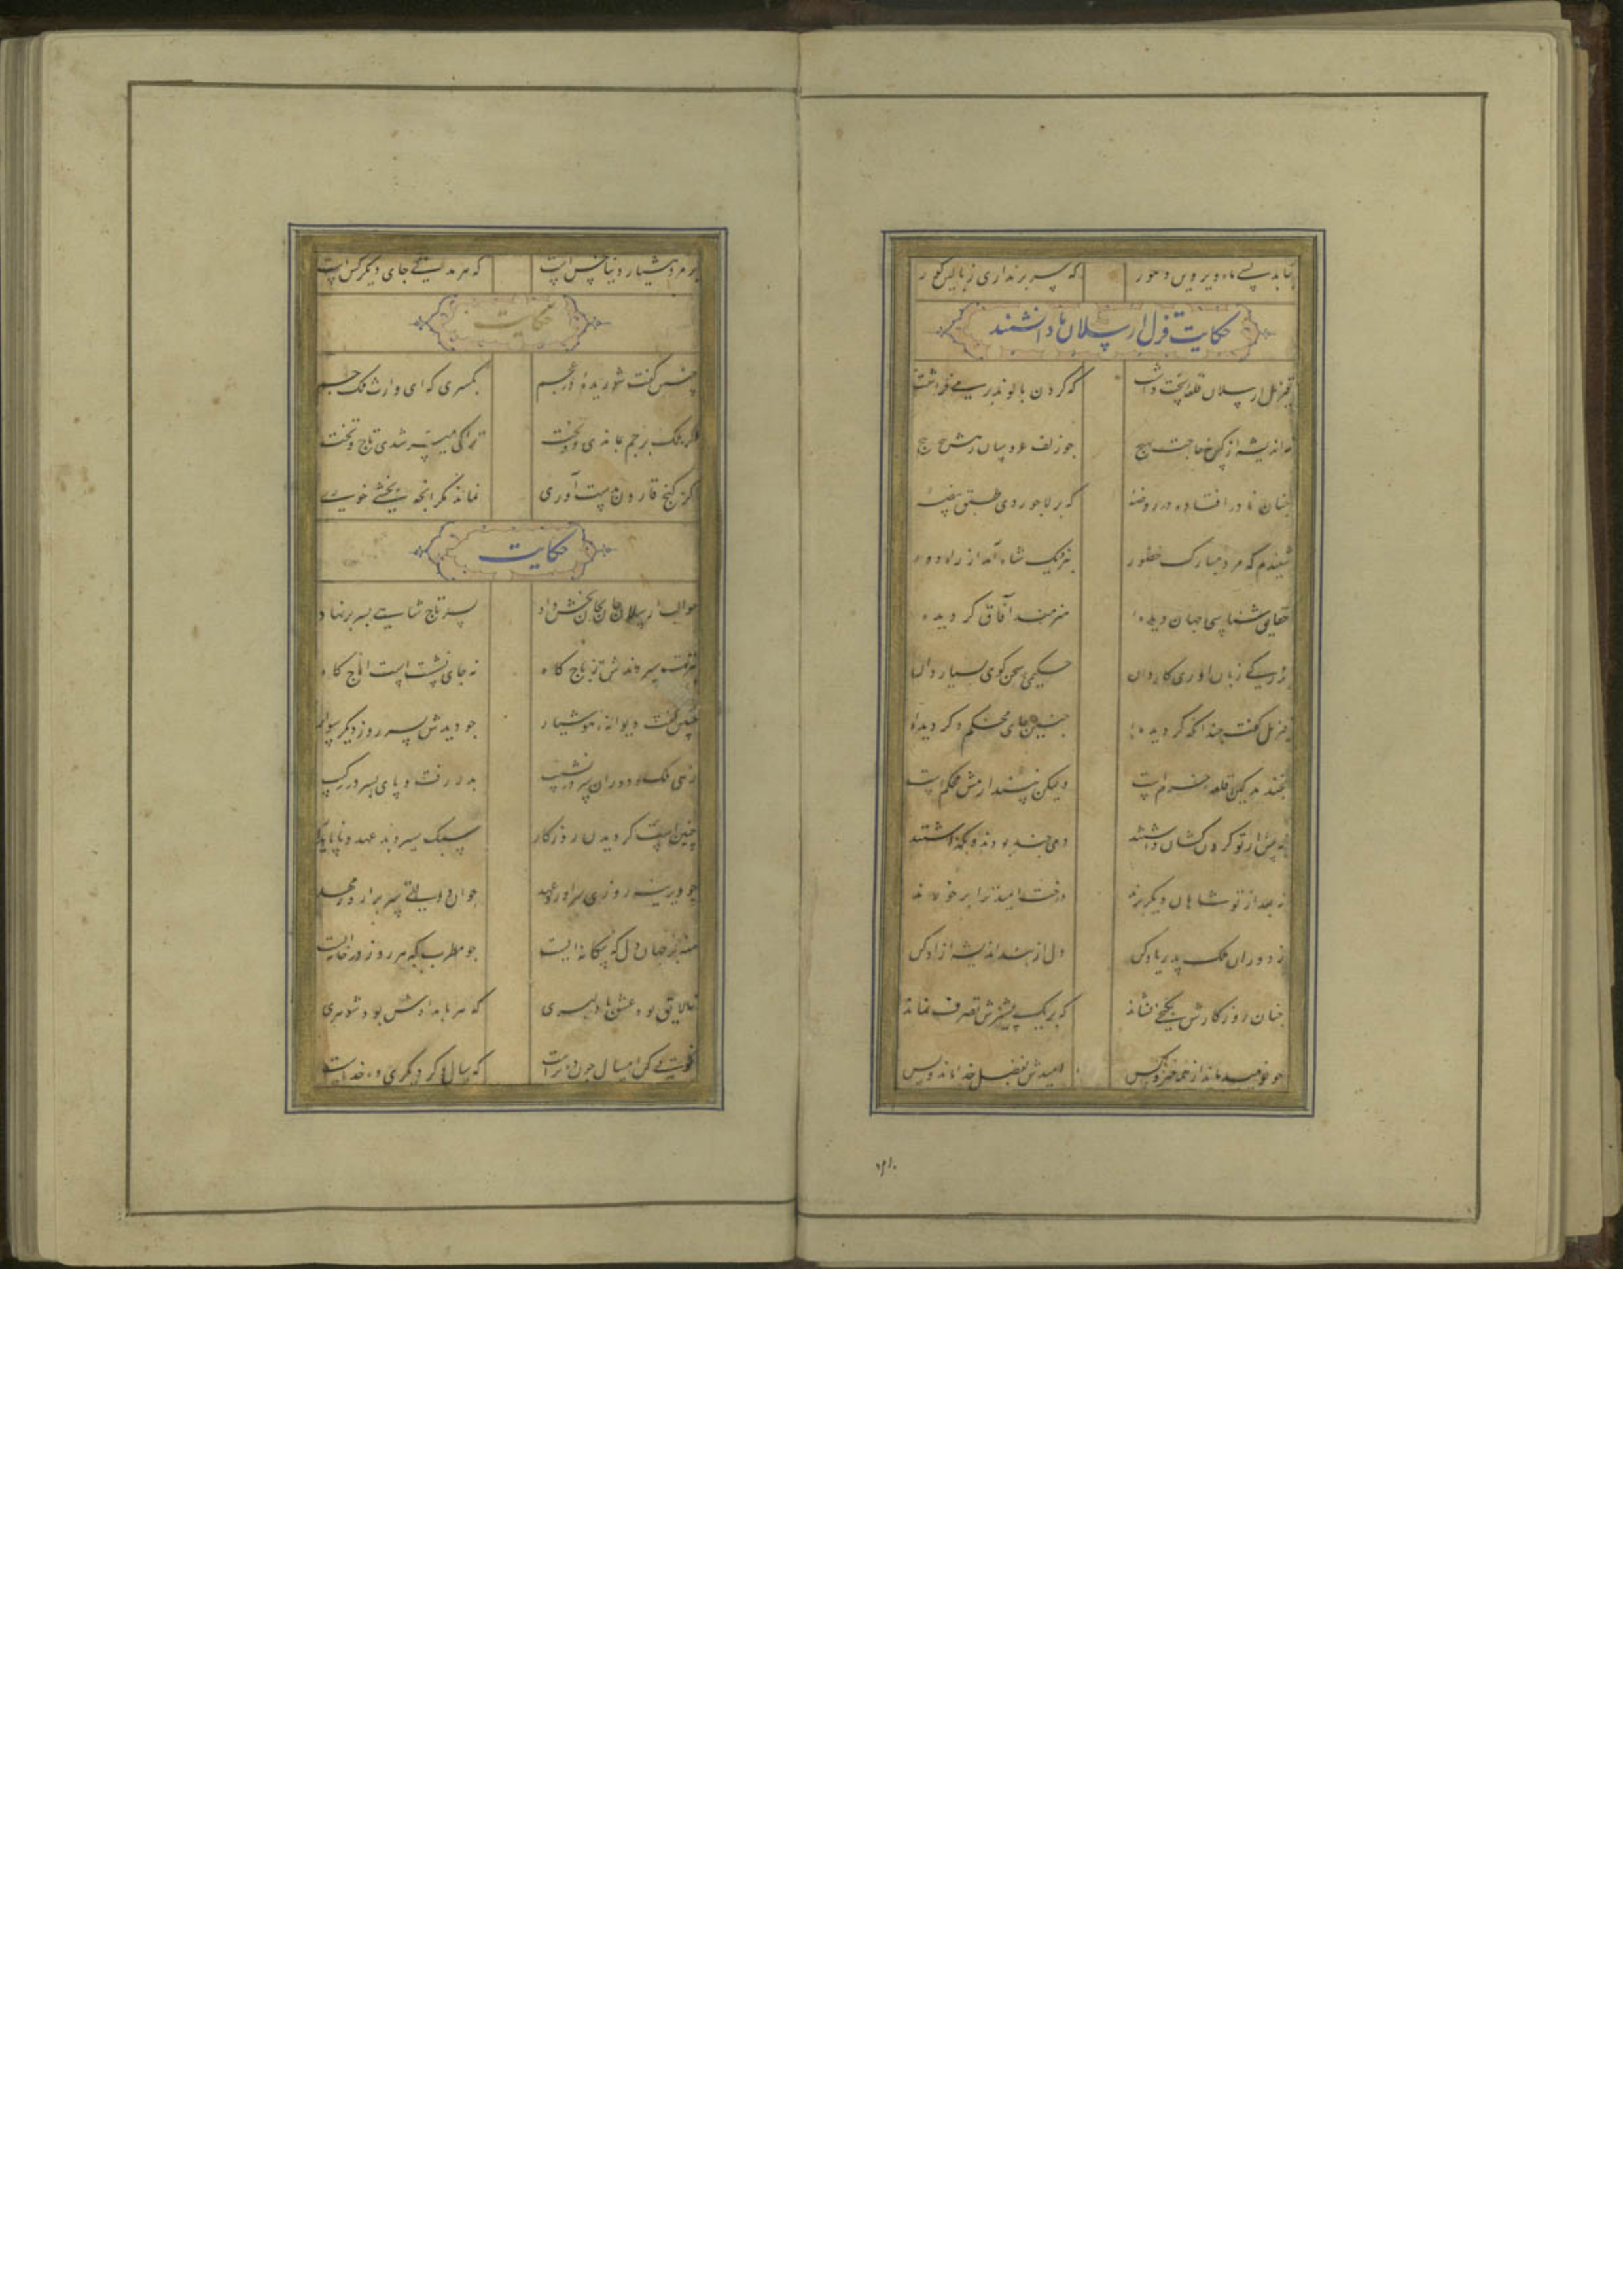 بتابد بسی ماه و پروین و هور که سر بر نداری ز بالین کور
حکایت قزل ارسلان با دانشمند
قزل ارسلان قلعه سخت داشت که کردن بالوند بر می فراشت
نه اندیشه از کس نه حاجت بهیچ جو زلف عروسان رهش پیچ پیچ
جنان نادر افتاده در روضه که بر لاجوردی طبق بیضه
شنیدم که مرد مبارک حضور بنزدیک شاه آمد از راه دور
حقایق شناسی جهان دیده هنرمند آفاق کردیده
بزرکی زبان آوری کاردان حکیمی سخن کوی بسیار دان
قزل کفت جندانکه کردیده جنین جای محکم دکر دیده
بخندید کین قلعه خرم است ولیکن نپندارمش محکم است
نه پیش از تو کردن کشان داشتند دمی جند بودند و بکذاشتند
نه بعد از تو شاهان دیکر برند درخت امید ترا بر خورند
ز دوران ملک پدر یاد کن دل از بند اندیشه آزاد کن
جنان روزکارش بکنجی نشاند که بر یک پشیزش تصرف نماند
جو نومید ماند از همه جیز و کس امیدش بفضل خدا ماند و بس
۱۲۱۰
بر مرد هشیار دنیا خس است که هر مدتی جای دیکر کس است
حکایت
جنین کفت شوریده در عجم بکسری که ای وارث ملک جم
اکر ملک بر جم بماندی و بخت ترا کی میسر شدی تاج و تخت
اکر کنج قارون بدست آوری نماند مکر انجه بخشی خوری
حکایت
جو الب ارسلان جان بجان بخش داد پسر تاج شاهی بسر بر نهاد
بتربت سپردندش از تاج کاه نه جای نشست است اماج کاه
جنین کفت دیوانه هوشیار جو دیدش پسر روز دیکر سوار
زهی ملک و دوران سر در نشیب پدر رفت و پای پسر در رکیب
جنین است کردیدن روزکار سبک سیر و بد عهد و ناپایدار
جو دیرینه روزی سرآورد عهد جوان دولتی سر برآرد ز مهد
منه بر جهان دل که بیکانه ایست جو مطرب که هر روز در خانه ایست
نه لایق بود عشق با دلبری که هر بامدادش بود شوهری
نکویی کن امسال جون ده تراست که سال دکر دیکری ده خداست